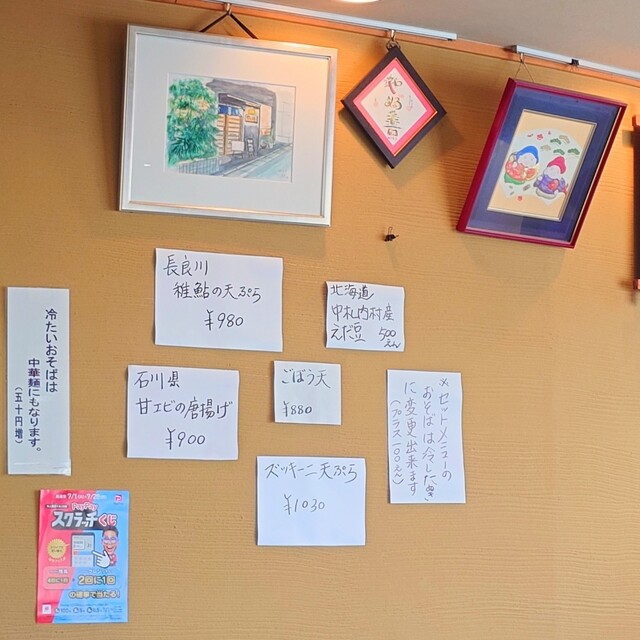 長良川
稚鮎の天ぷら
¥980
北海道
中札内村産
えだ豆 500えん
冷たいおそばは
中華麺にもなります。
(五十円増)
石川県
甘エビの唐揚げ
¥900
ごぼう天
¥880
※セットメニューの
おそばは冷したぬき
に変更出来ます
(プラス100えん)
ズッキーニ天ぷら
¥1030
PayPay
スクラッチくじ
2回に1回
の確率で当たる!